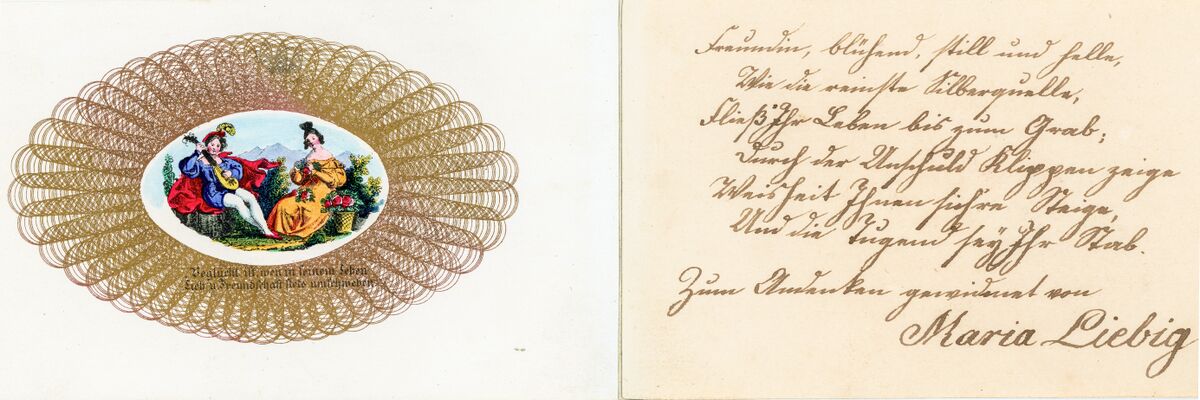 Beglückt ist, wen in seinem Leben
Lieb u Freundschaft stets umschweben.
Freundin, blühend, still und helle,
Wie die reinste Silberquelle,
Fließ' Ihr Leben bis zum Grab;
Durch der Unschuld Klippen zeige
Weisheit Ihnen sichre Steige,
Und die Tugend sey Ihr Stab.
Zum Andenken gewidmet von
Maria Liebig